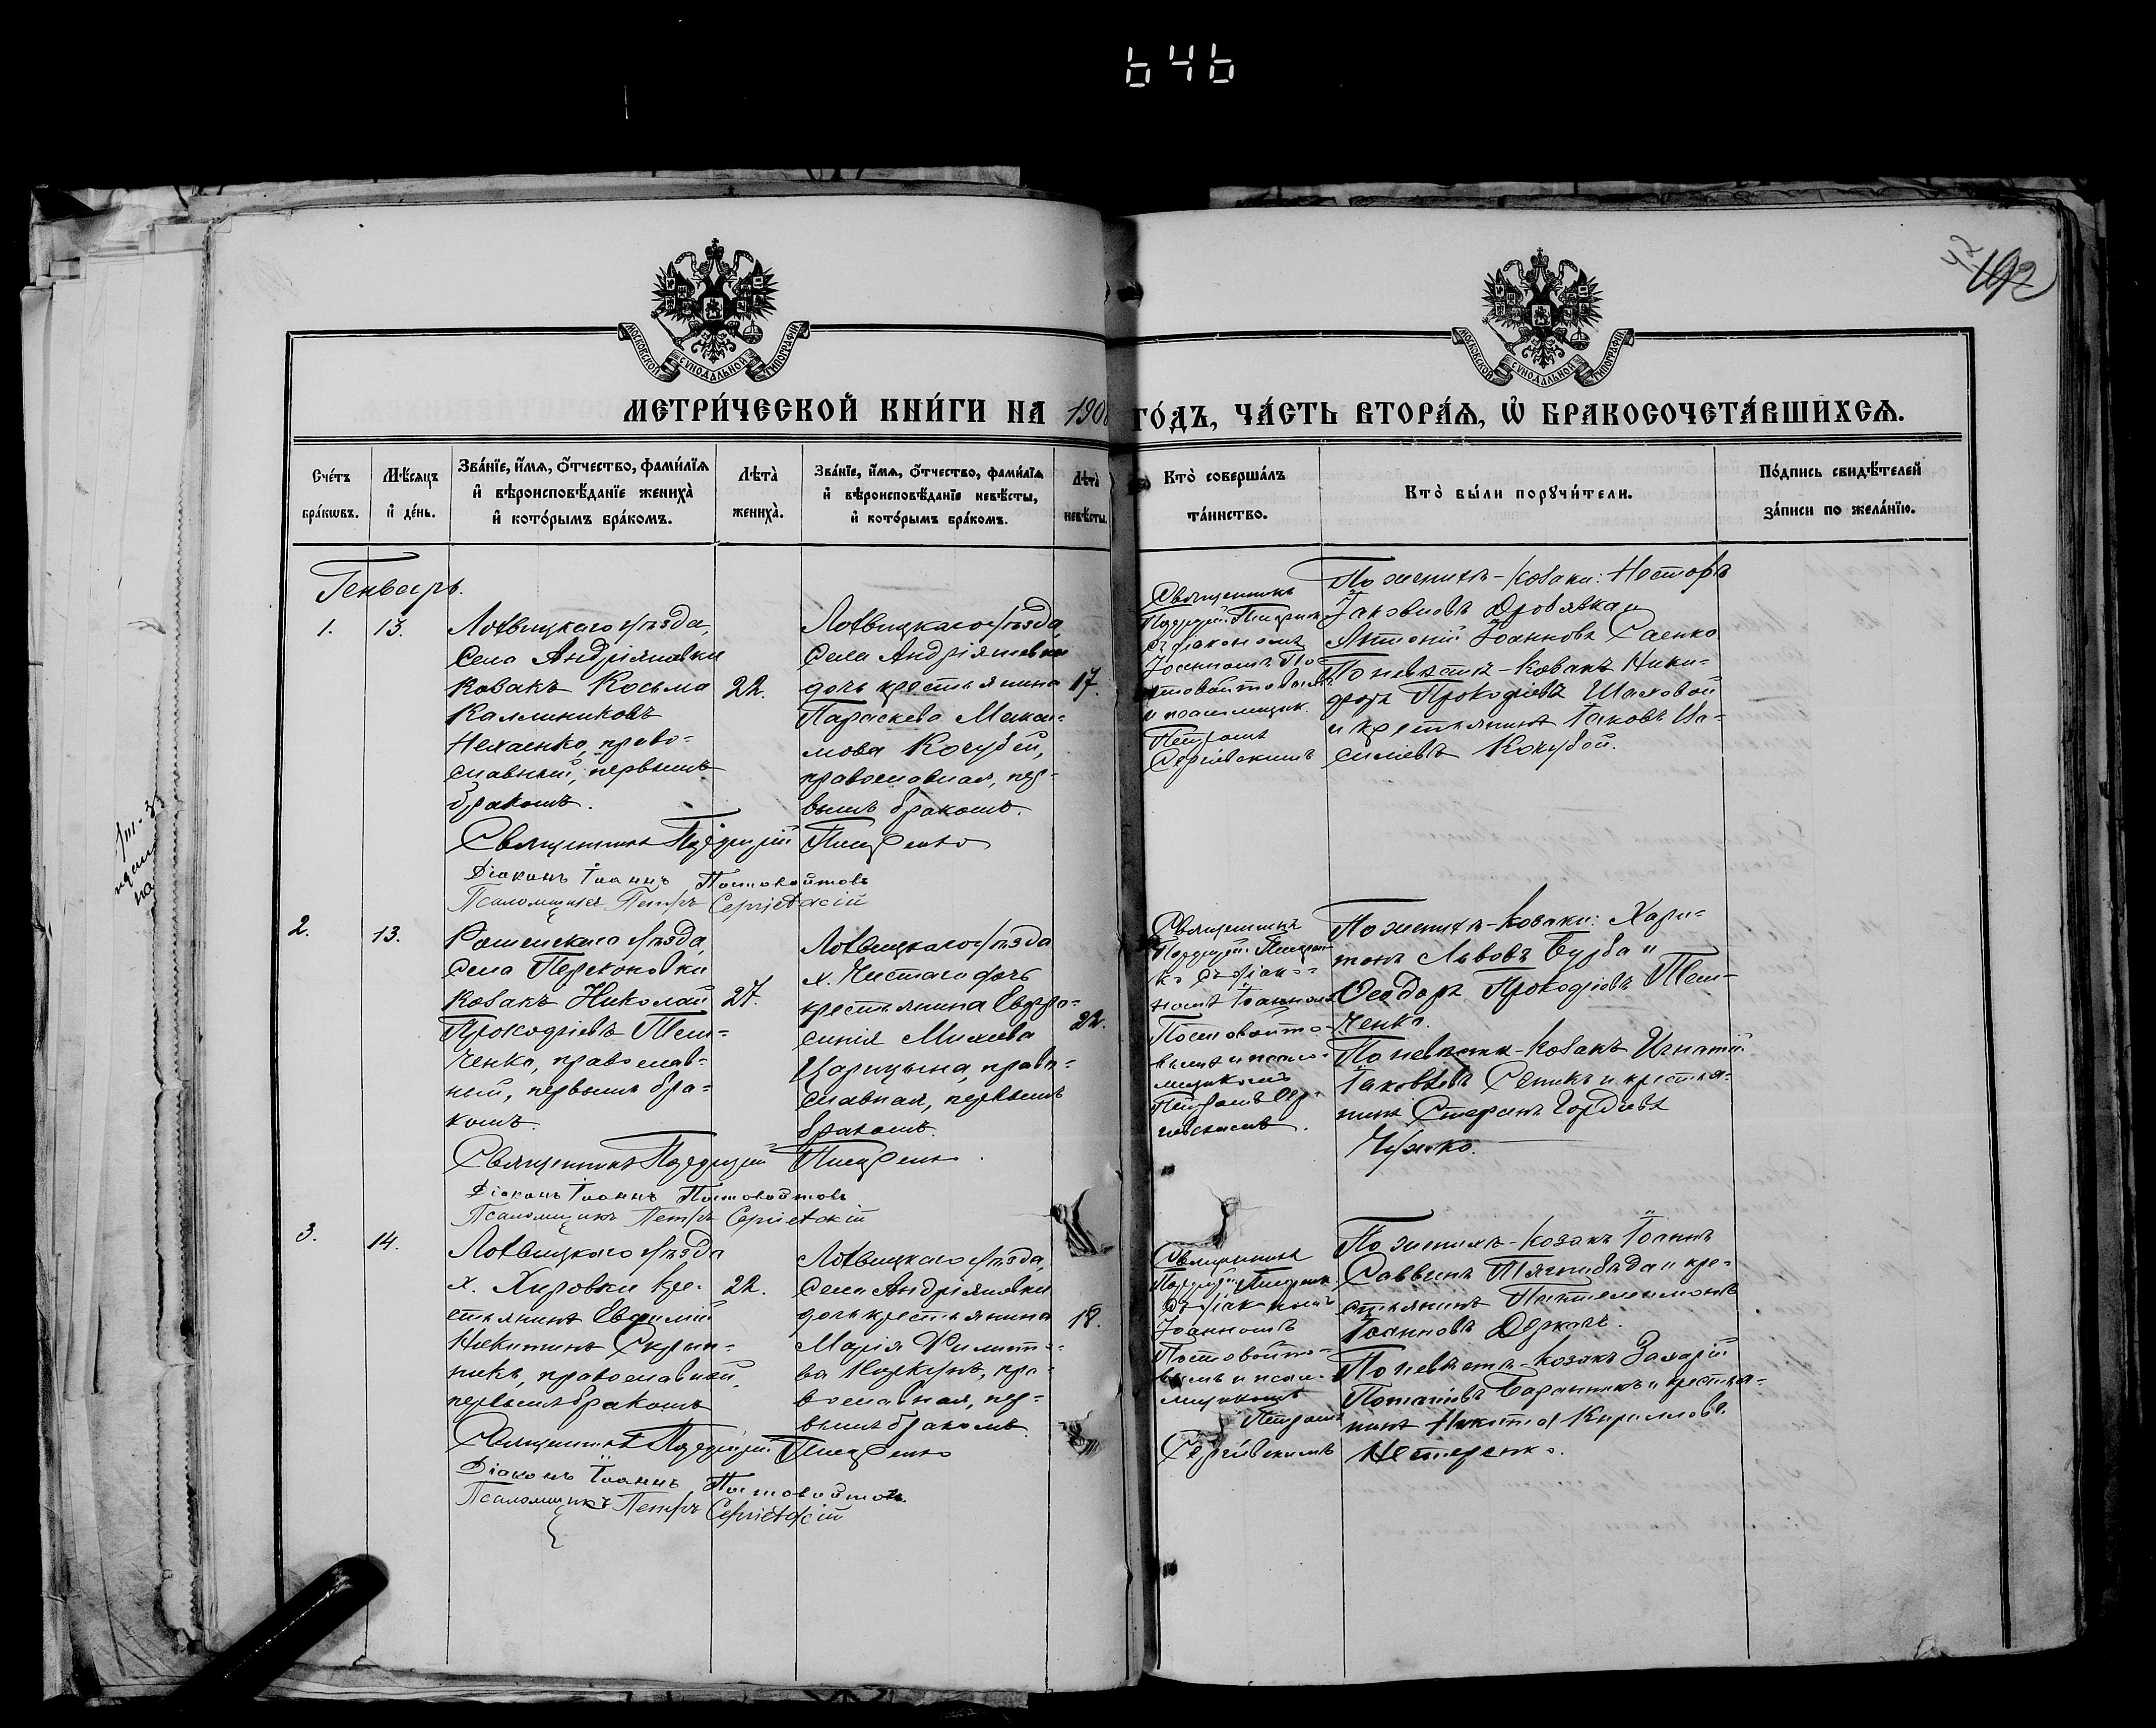 646
42
192
МОСКОВСКОЙ СѴНОДАЛЬНОЙ ТИПОГРАФІИ
МОСКОВСКОЙ СѴНОДАЛЬНОЙ ТИПОГРАФІИ
МЕТРИ́ЧЕСКОЙ КНИ́ГИ НА 190
ГО́ДЪ, ЧА́СТЬ ВТОРА́Я, Ѡ҆ БРАКОСОЧЕТА́ВШИХСЯ.
Сче́тъ бра́кωвъ.
Мѣ́сяцъ и҆ де́нь.
Зва́нїе, и҆́мя, ѻ҆́тчество, фами́лїя и҆ вѣроисповѣ́данїе жениха̀ и҆ кото́рымъ бра́комъ.
Лѣта̀ жениха̀.
Зва́нїе, и҆́мя, ѻ҆́тчество, фами́лїя и҆ вѣроисповѣ́данїе невѣ́сты, и҆ кото́рымъ бра́комъ.
Лѣта̀ невѣ́сты.
Кто̀ соверша́лъ та́инство.
Кто̀ бы́ли порꙋчи́тели.
По́дпись свидѣ́телей за́писи по жела́нїю.
Генварь.
1.
13.
Лохвицкаго уѣзда,
села Андріяшовки
козакъ Косьма
Каллиниковъ
Нехаенко, право-
славный, первымъ
бракомъ.
22.
Лохвицкаго уѣзда,
села Андріяшевки
дочь крестьянина
Параскева Макси-
мова Кочубей,
православная, пер-
вымъ бракомъ.
17.
Священникъ
съ діакономъ
Іоанномъ По-
стовойтовымъ
и псаломщик.
Петромъ
Сергіевскимъ
По женихѣ - козаки: Несторъ
Іаковлевъ Дробязка и
Антоній Іоанновъ Саенко
По невѣстѣ - козакъ Ники-
форъ Прокофіевъ Шаховой
и крестьянинъ Іаковъ Ва-
силіевъ Кочубей.
Священникъ
Діаконъ Іоаннъ Постовойтовъ
Псаломщикъ Петръ Сергіевскій
2.
13.
Роменскаго уѣзда,
села Перекоповки
козакъ Николай
Прокофіевъ Тем-
ченко, православ-
ный, первымъ бра-
комъ.
27.
Лохвицкаго уѣзда
х. Чистаго дочь
крестьянина Евфро-
синія Михеева
Царицына, право-
славная, первымъ
бракомъ.
22.
Священникъ
ко съ діако-
номъ Іоанномъ
Постовойто-
вымъ и псало-
мщикомъ
Петромъ Сер-
гіевскимъ.
По женихѣ - козаки: Хари-
тонъ Львовъ Бурба и
Ѳеодоръ Прокофіевъ Тем-
ченко.
По невѣстѣ - козакъ Игнатій
Іаковлевъ Сепикъ и крестья-
нинъ Стефанъ Гордіевъ
Священникъ
Діаконъ Іоаннъ Постовойтовъ
Псаломщикъ Петръ Сергіевскій
3.
14.
Лохвицкаго уѣзда
х. Хировки кре-
стьянинъ Евфимій
Никитинъ Скрып-
никъ, православный,
первымъ бракомъ
22.
Лохвицкаго уѣзда,
села Андріяшевки
дочь крестьянина
Марія Филиппо-
ва пра-
вославная, пер-
вымъ бракомъ
18.
Священникъ
съ діакономъ
Іоанномъ
Постовойто-
вымъ и псал-
мщикомъ
Петромъ
Сергіевскимъ
По женихѣ - козакъ Іоаннъ
Саввинъ Тягнибѣда и кре-
стьянинъ Пантелеимонъ
Іоанновъ Деркачъ.
По невѣстѣ - козакъ Захарій
Потапіевъ Баранникъ и крестья-
нинъ Никита Кирилловъ
Нестеренко.
Священникъ
Діаконъ Іоаннъ Постовойтовъ.
Псаломщикъ Петръ Сергіевскій